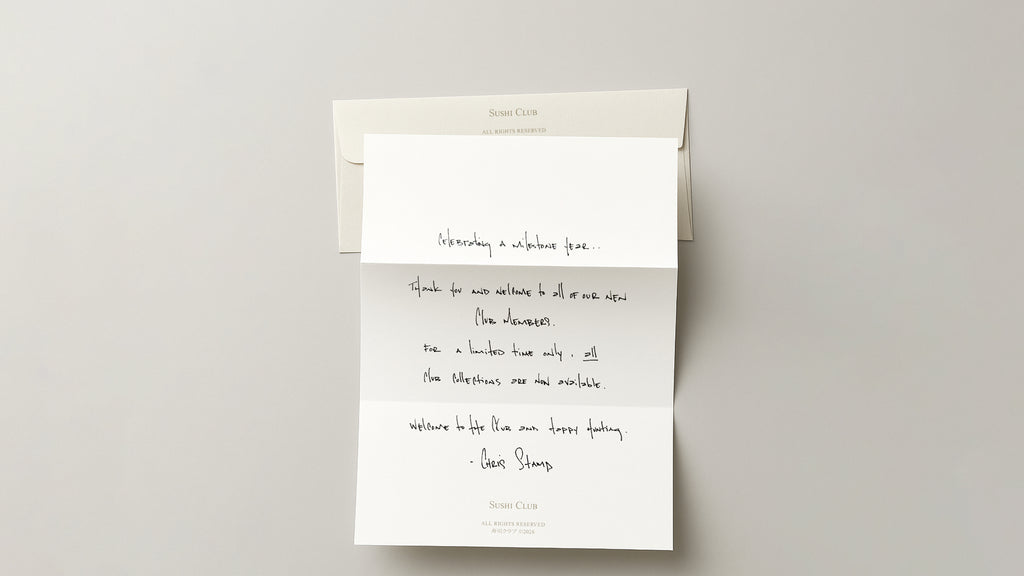 Sushi Club
ALL RIGHTS RESERVED
Celebrating a milestone year..
Thank you and welcome to all of our new
Club Members.
For a limited time only, all
Club collections are now available.
Welcome to the Club and happy hunting.
- Chris Stamp
Sushi Club
ALL RIGHTS RESERVED
寿司クラブ ©2024